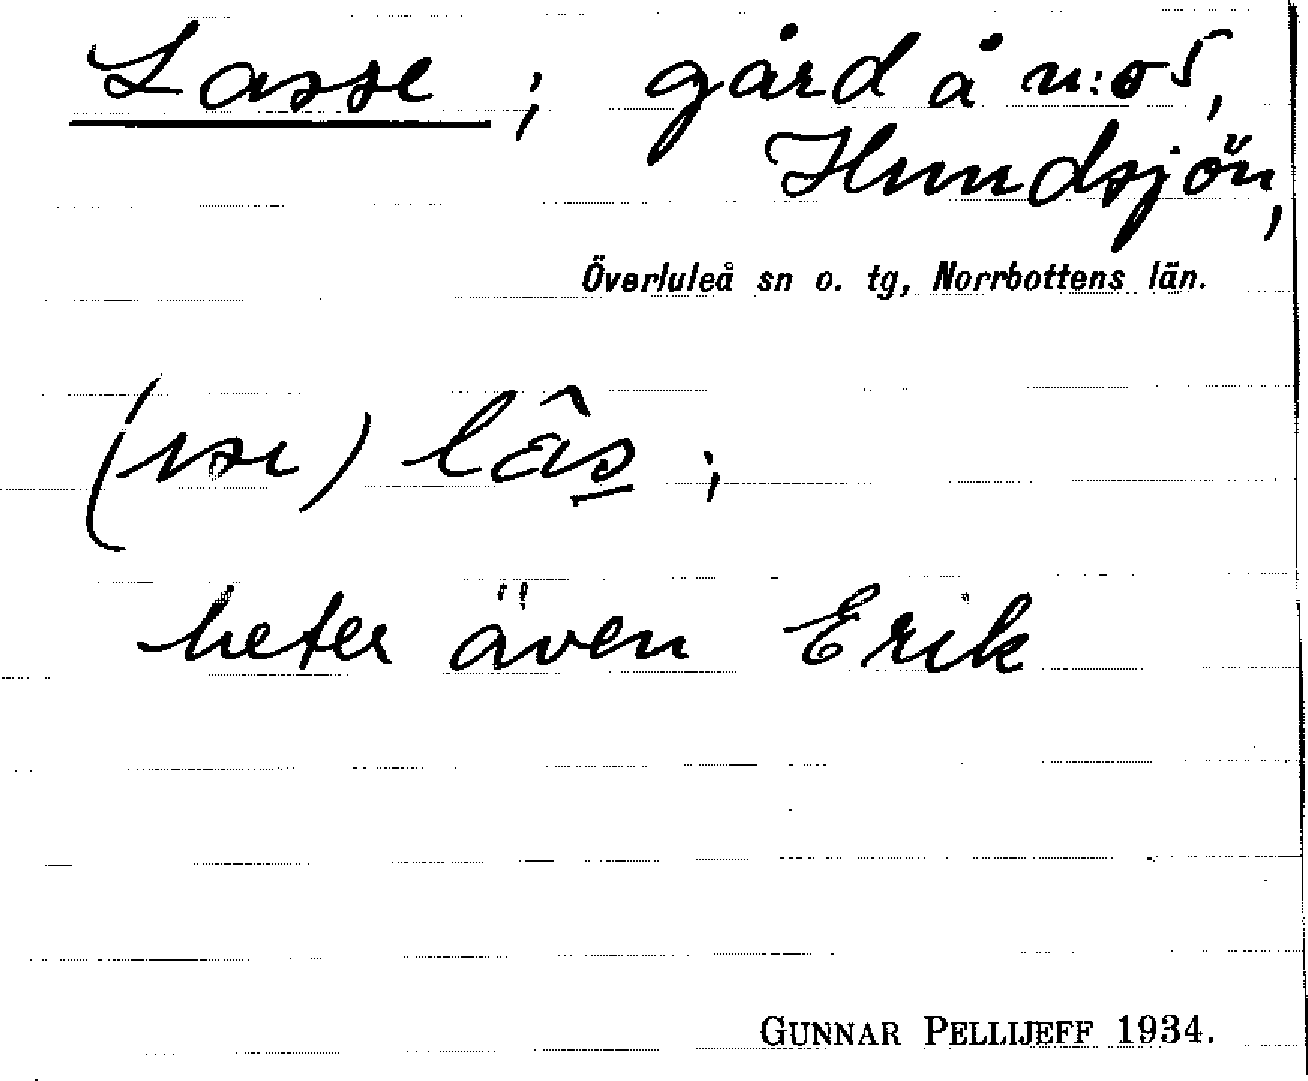 Lasse; gård å n:o 5,
Hundsjön,
Överluleå sn o. tg, Norrbottens län.
lâs;
heter även Erik
GUNNAR PELLIJEFF 1934.